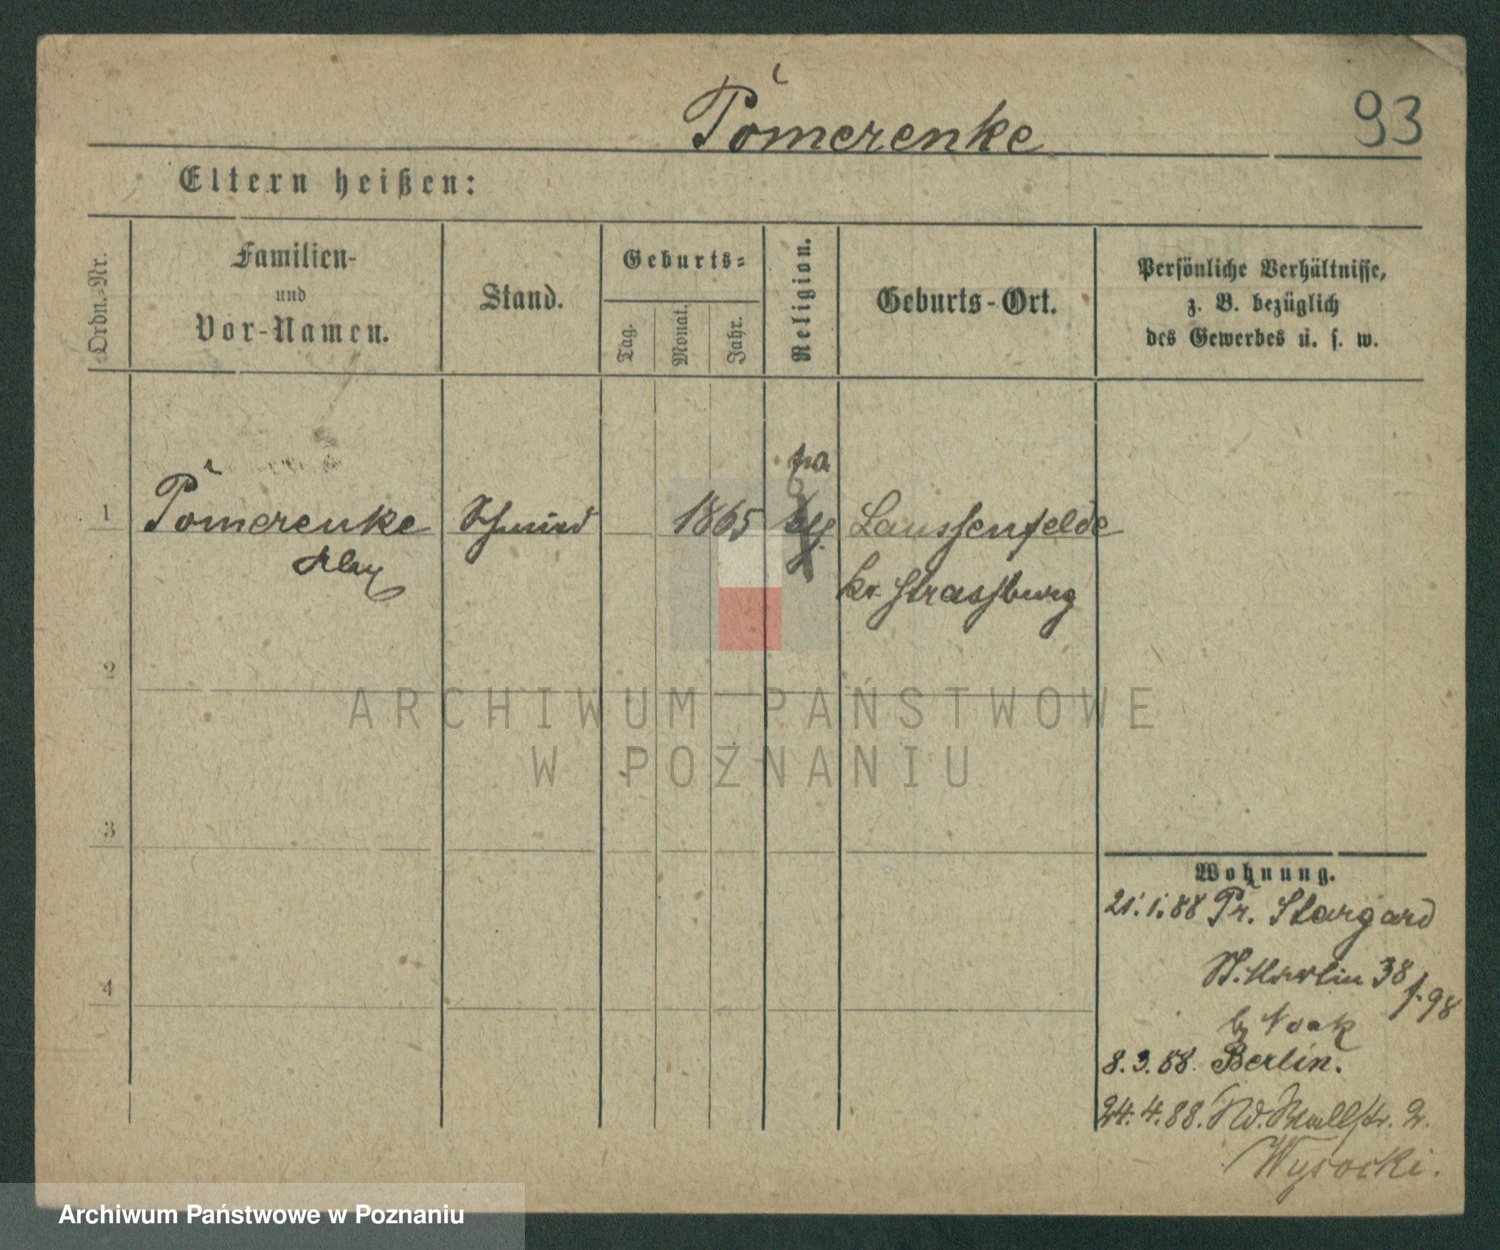 Pomerenke
93
Eltern heißen:
Ordn.-Nr.
Familien-
und
Vor-Namen.
Stand.
Geburts-
Tag.
Monat.
Jahr.
Religion.
Geburts-Ort.
Persönliche Verhältnisse,
z. B. bezüglich
des Gewerbes u. s. w.
1
Pomerenke
Max
Schmied
1865
Laussenfelde
Kr. Strassburg
2
3
4
ARCHIWUM PAŃSTWOWE
W POZNANIU
Wohnung.
21.1.88 Pr. Stargard
St. Martin 38
f. 98
b. Noak
8.3.88. Berlin.
24.4.88. Wallstr. 2.
Wysocki.
Archiwum Państwowe w Poznaniu